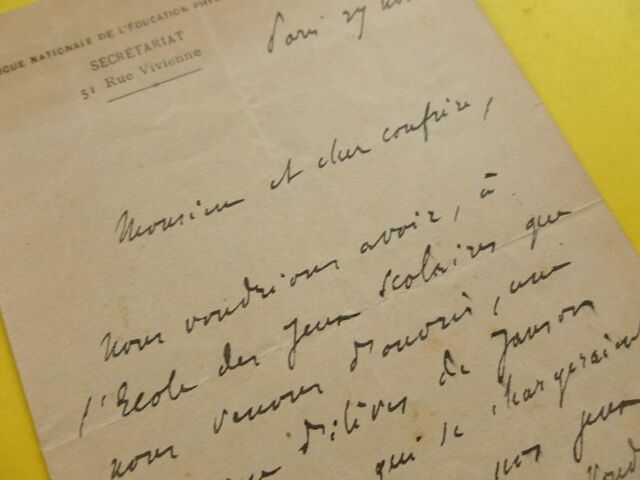 IGUE NATIONALE DE L'ÉDUCATION PHY
SECRÉTARIAT
51 Rue Vivienne
Paris 27
Monsieur et cher confrère,
Nous voudrions avoir, à
l'Ecole des Jeux scolaires que
nous venons d'ouvrir, une
d'élèves de Janson
qui se chargeraient
nos jeux